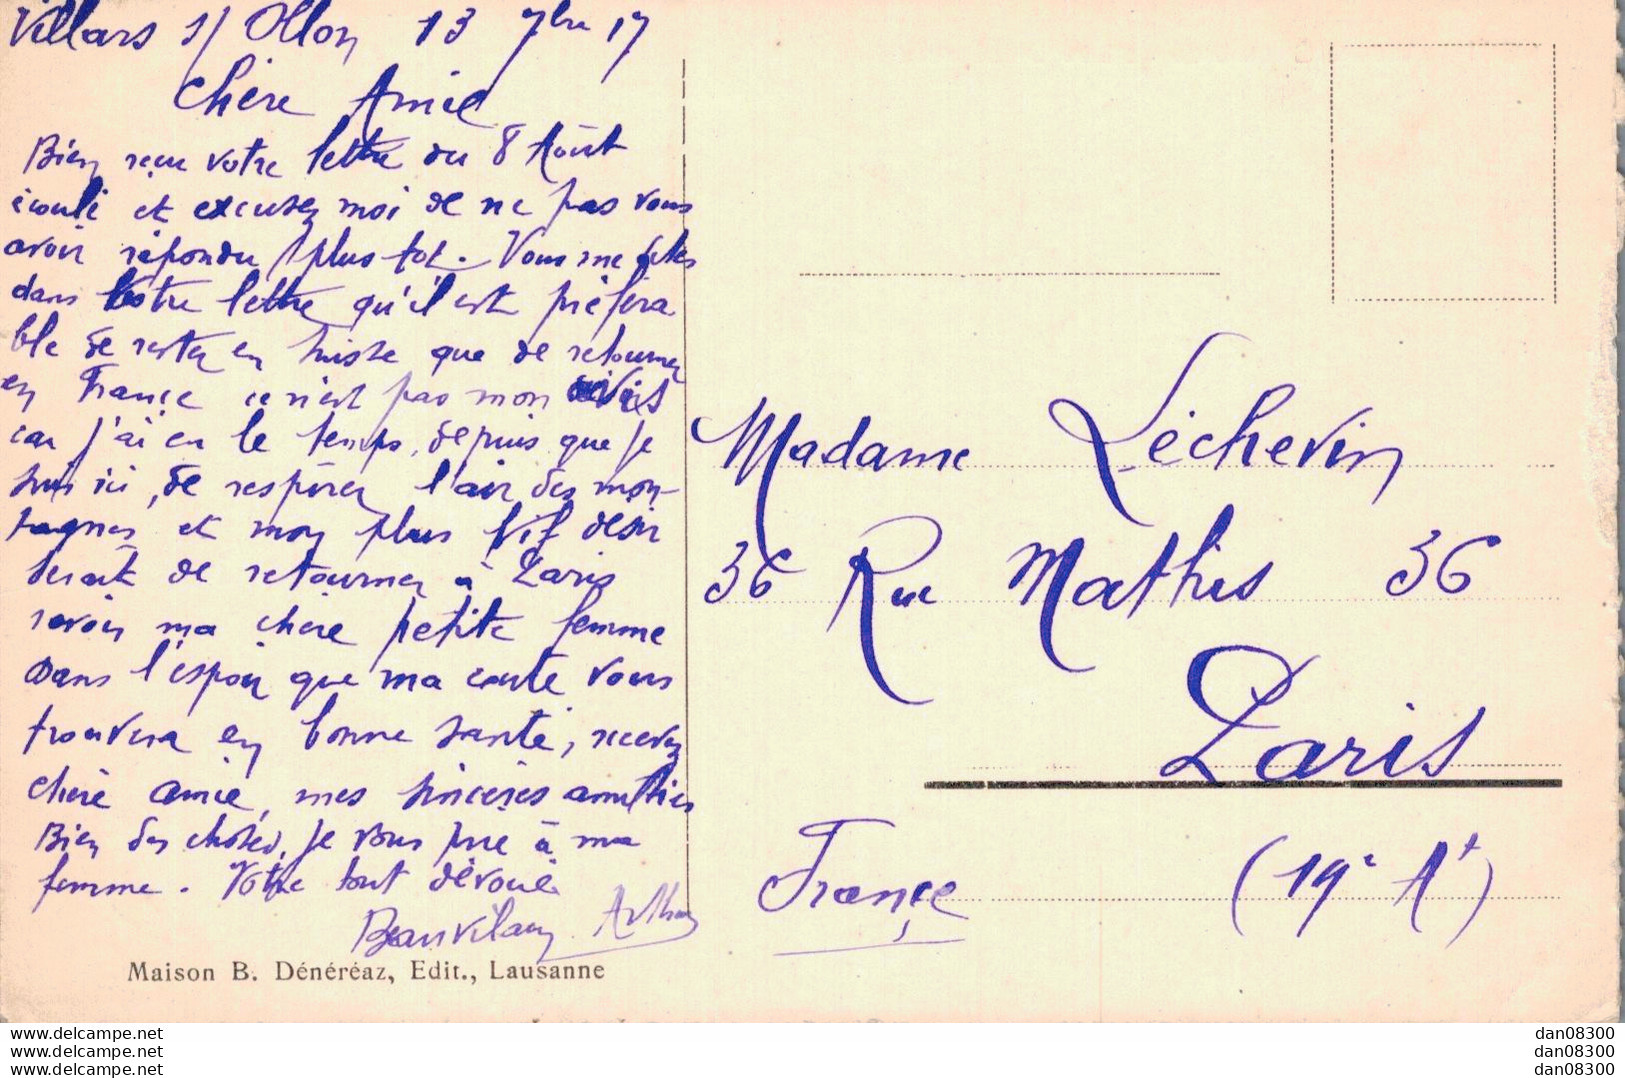 Villars s/ Ollon 13 7bre 17
Chère Amie
Bien reçu votre lettre du 8 Août
écoulé et excusez moi de ne pas vous
avoir répondu plus tot. Vous me dites
dans votre lettre qu'il est préféra
ble de rester en Suisse que de retourner
en France ce n'est pas mon avis
car j'ai eu le temps, depuis que je
suis ici, de respirer l'air des mon-
tagnes et mon plus vif désir
serait de retourner à Paris
revoir ma chère petite femme
Dans l'espoir que ma carte vous
trouvera en bonne santé, recevez
chère amie, mes sincères amitiés
Bien des choses, je vous prie à ma
femme. Votre tout dévoué
Beauvilain Arthur
Maison B. Dénéréaz, Edit., Lausanne
Madame Léchevin
36 Rue Mathis 36
Paris
France (19e At)
www.delcampe.net
www.delcampe.net
www.delcampe.net
dan08300
dan08300
dan08300